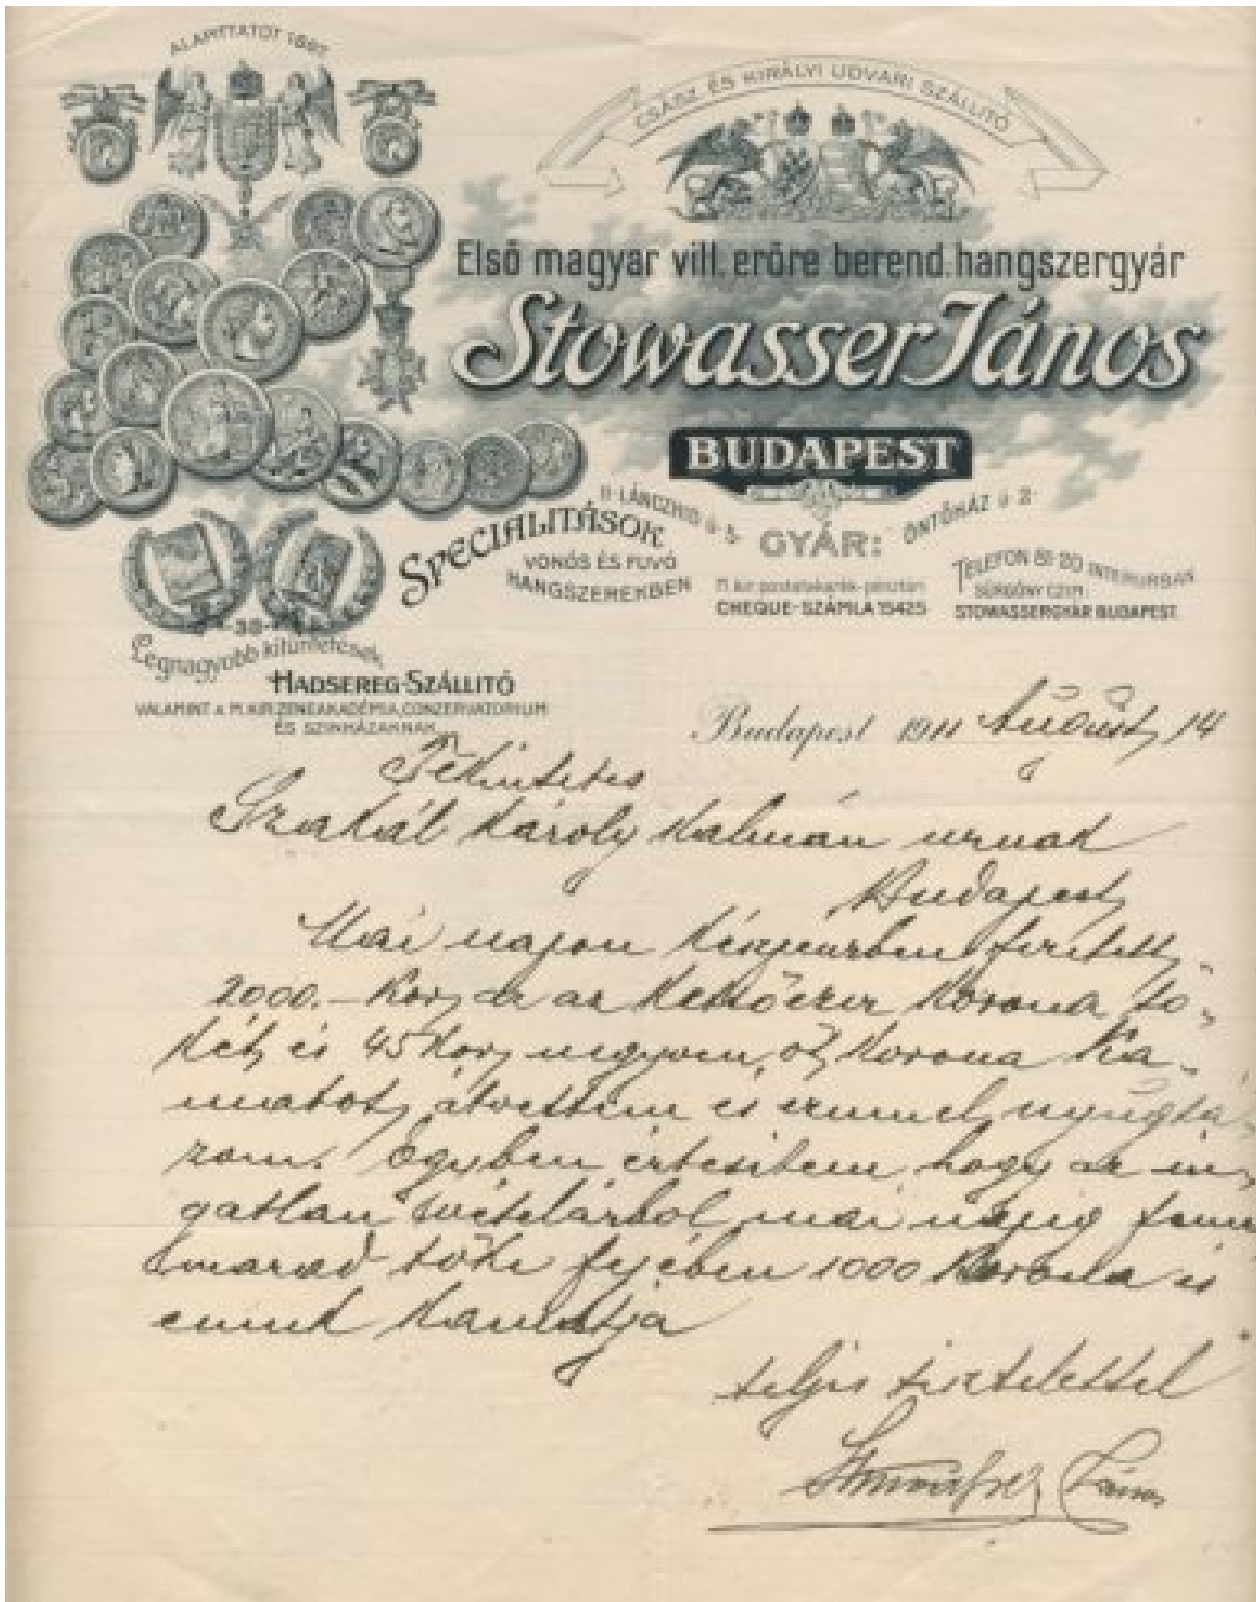 ALAPITTATOT 18
CSÁSZ. ÉS KIRÁLYI UDVARI SZÁLLITÓ
Első magyar vill. erőre berend. hangszergyár
Stowasser János
BUDAPEST
II LÁNCZHID U. 5.
GYÁR:
ÖNTŐHÁZ U. 2.
SPECIALITÁSOK
VONÓS ÉS FUVÓ
HANGSZEREKBEN
M. kir. postatakarék-pénztári
CHEQUE-SZÁMLA 15425
TELEFON 81-20 INTERURBAN
SÜRGÖNY CZIM:
STOWASSERGYÁR BUDAPEST.
Legnagyobb kitüntetések
HADSEREG-SZÁLLITÓ
VALAMINT A M. KIR. ZENEAKADÉMIA, CONZERVATORIUM
ÉS SZINHÁZAKNAK
Budapest 1911 August 14
Tekintetes
Szakál Károly Kálmán urnak
Budapest
Mai napon készpénzben fizetett
2000.- Kor, az az Kettőezer Korona tő-
két, és 45 Kor, negyven, öt, Korona ka-
matot, átvettem és ezennel, nyugtá-
zom. Egyben értesitem, hogy az in-
gatlan vételárból, mai napig fenn
marad tőke fejében 1000 Korona és
ennek kamatja
teljes tisztelettel
Stowasser János